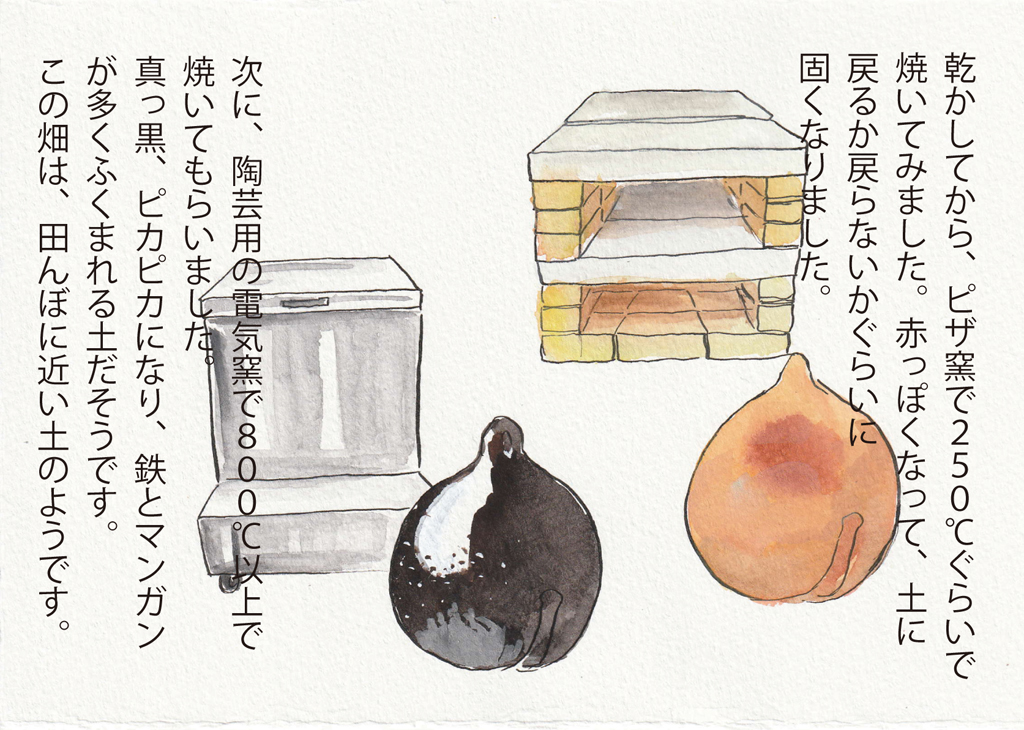 乾かしてから、ピザ窯で250℃ぐらいで
焼いてみました。赤っぽくなって、土に
戻るか戻らないかぐらいに
固くなりました。
次に、陶芸用の電気窯で800℃以上で
焼いてもらいました。
真っ黒、ピカピカになり、鉄とマンガン
が多くふくまれる土だそうです。
この畑は、田んぼに近い土のようです。